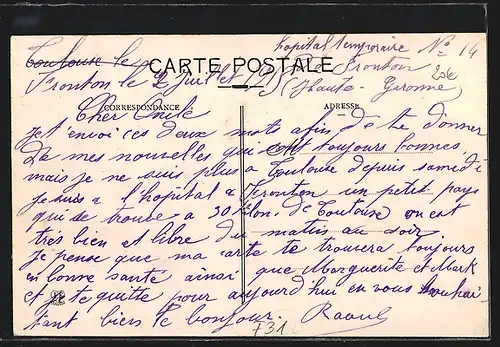 hopital temporaire No 14
Toulouse le
CARTE POSTALE
Fronton
Fronton le 2 Juillet
(Haute-Garonne)
CORRESPONDANCE
ADRESSE
Cher Oncle
Je t'envoi ces deux mots afin de te donner
de mes nouvelles qui sont toujours bonnes
mais je ne suis plus a Toulouse depuis samedi
je suis a l'hopital a Fronton un petit pays
qui se trouve a 30 Klom. de Toulouse on est
très bien et libre du matin au soir.
Je pense que ma carte te trouvera toujours
en bonne santé ainsi que Marguerite et Mark
et je te quitte pour aujourd'hui en vous souhai
tant bien le bonjour. Raoul
+31